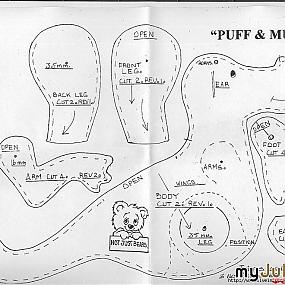 "PUFF & MU
OPEN
35mm.
BACK LEG
CUT 2. REV.
FRONT
LEG.
CUT 2. REV.1.
EAR
OPEN
FOOT
CUT 4
OPEN
16mm
ARM CUT 4. REV 2.
OPEN
ARMS.
BODY
CUT 2: REV.1.
35mm.
LEG
POSITION
NOT JUST BEARS
myJul